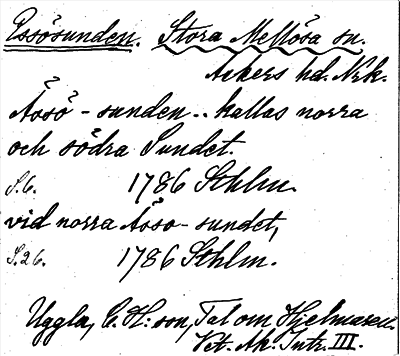 Essösunden. Stora Mellösa sn.
Askers hd. Nrk.
Åosö - sunden.. kallas norra
och södra Sundet.
S.6. 1786 Sthlm.
vid norra Åöso - sundet,
S.26. 1786 Sthlm.
Uggla, C. H:son, Tal om Hjelmaren.
Vet. Ak. Intr. III.